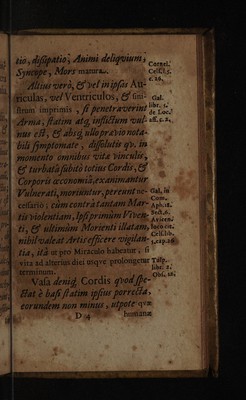 tio, dissipatio, Animi deliqvium,
Syncope, Mors matura.
Altius verò, & vel in ipsos Au-
riculas, vel Ventriculos, & sini-
strum imprimis, si penetraverint
Arma, statim atq; inflictum vul-
nus est, & absq; ullo prævio nota-
bili symptomate, dissolutis qv. in
momento omnibus vitæ vinculis,
& turbatâ subitò totius Cordis, &
Corporis œconomiâ, exanimantur
Vulnerati, moriuntur, pereunt ne-
cessario; cùm contrà tantam Mar-
tis violentiam, Ipsi primùm Viven-
ti, & ultimùm Morienti illatam,
nihil valeat Artis efficere vigilan-
tia, ità ut pro Miraculo habeatur, si
vita ad alterius diei usqve prolongetur
terminum.
Vasa deniq; Cordis qvod spe-
ctat è basi statim ipsius porrecta,
eorundem non minus, utpote qvæ
D 4 humanæ
Cornel.
Cels. l. 5.
c. 26.
Gal.
libr. 5.
de Loc.
aff. c. 2.
Gal. in
Com.
Aph. 18.
Sect. 6.
Avicen.
loco cit.
Cels. lib.
5. cap. 26
Tulp.
libr. 2.
Obs. 18.